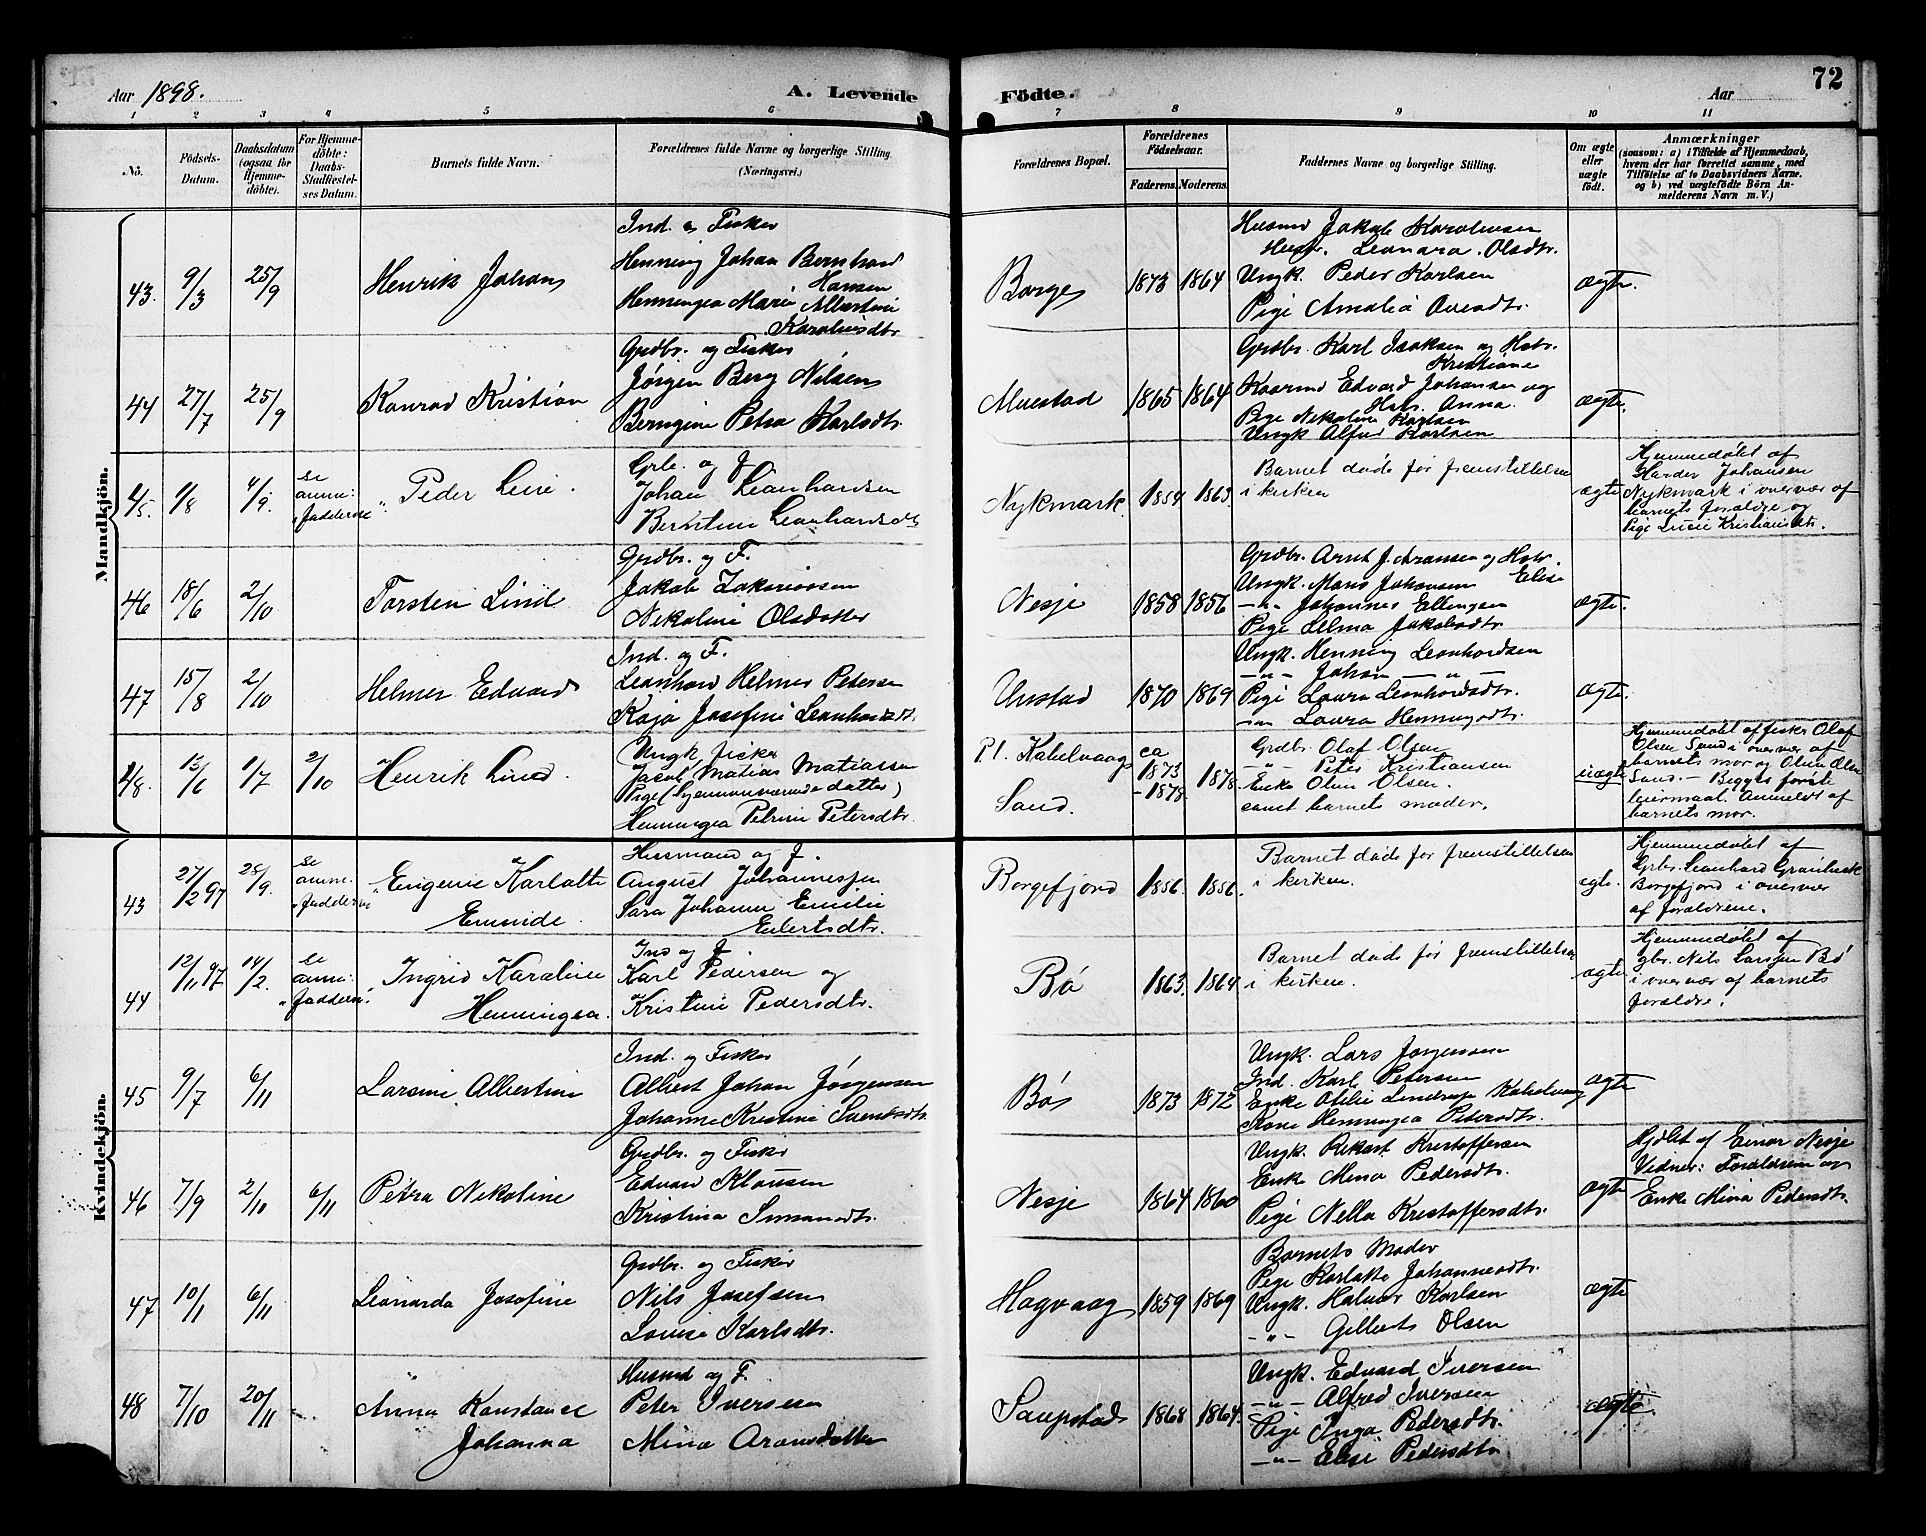 Aar 1898.
A. Levende
Födte.
Aar
72
1 2 3 4 5 6 7 8 9 10 11
No.
Födsels-
Datum.
Daabsdatum
(ogsaa for
Hjemme-
döbte).
For Hjemme-
döbte:
Daabs-
Stadfæstel-
ses Datum.
Barnets fulde Navn.
Forældrenes fulde Navne og borgerlige Stilling.
(Næringsvei.)
Forældrenes Bopæl.
Forældrenes
Födselsaar.
Faderens. Moderens.
Faddernes Navne og borgerlige Stilling.
Om ægte
eller
uægte
födt.
Anmærkninger
(saasom: a) i Tilfælde af Hjemmedaab,
hvem der har forrettet samme, med
Tilföielse af to Daabsvidners Navne.
og b) ved uægtefödte Börn An-
melderens Navn m. V.)
Mandkjön.
43. 9/3 25/9
Henrik Johans
Ind. og Fisker
Henning Johan Bernhard
Hansen
Henningea Marie Albertine
Karoliusdtr.
Borge
1873 1864
Husmd Jakob Karoliusen
Hustr. Leonara Olsdtr.
Ungk. Peder Karlsen
Pige Amalia Ovesdtr.
ægte.
44 27/7 25/9
Konrad Kristian
Grdbr. og Fisker
Jørgen Berg Nilsen
Berngine Petra Karlsdtr.
Muestad
1865 1864
Grdbr. Karl Isaksen og Hstr.
Kristiane
Kaarmd Edvard Johansen og
Hstr. Anna.
Pige Nikoline Karlsen
Ungk Alfred Karlsen
ægte.
45. 1/8 4/9.
se
anm:
"fadderne"
Peder Lere.
Grb. og f
Johan Leanhardsen
Berntine Leanhardsdtr
Nykmark.
1854 1863.
Barnet døde før fremstillelsen
i kirken
ægte
Hjemmedøbt af
Harder Johansen
Nykmark i overvær af
barnets forældre og
Pige Lucie Kristiansdtr.
46 18/6 2/10
Torsten Lind
Grdbr. og F.
Jakob Zakariassen
Nikoline Olsdatter
Nesje
1858 1856
Grdbr. Arnt J. Aronsen og Hstr.
Elise
Ungk. Mons Johansen
—"— Johannes Ellingsen
Pige Selma Jakobsdtr
ægte.
47 15/8 2/10
Helmer Edvard
Ind. og F.
Leonhard Helmer Petersen
Kaja Josefine Leonhardsdtr.
Unstad
1870 1869
Ungk. Henning Leonhardsen
—"— Johan —"—
Pige Laura Leonhardsdtr.
—"— Laura Henningsdtr.
ægte.
48. 13/6 1/7 2/10
Henrik Lind.
Ungk. fisker
Jacob Matias Matiassen
Pige (hjemmeværende datter)
Henningea Petrine Petersdtr.
Pt. Kabelvaag
Sand.
ca
1873
-1878.
1878.
Grdbr. Olaf Olsen
—"— Peter Kristiansen
Enke Oline Olsen.
samt barnets moder.
uægte
Hjemmedøbt af fisker Olaf
Olsen Sund i overvær af
barnets mor og Oline Olsen
Sand. — Begges første
leiermaal. Anmeldt af
barnets mor.
Kvindekjön.
43 27/2 97 28/9.
se
anm.
"fadderne"
Eugenie Karlatte
Emende.
Husmand og f.
August Johannessen
Sara Johanna Emilie
Eilertsdtr.
Borgefjord
1856. 1856.
Barnet døde før fremstillelsen
i kirken.
egte.
Hjemmedøbt af
Grbr. Leanhard Granbæk
Borgefjord i overvær
af forældrene.
44 12/11 97 14/2.
se
anm:
"fadderne"
Ingrid Karaline
Henningea.
Ind og f
Karl Pedersen og
Kristine Pedersdtr.
Bø
1863. 1864
Barnet døde før fremstillelsen
i kirken.
ægte
Hjemmedøbt af
gbr. Nils Larsen Bø
i overvær af barnets
forældre.
45 9/7 6/11
Larsine Albertine
Ind. og Fisker
Albert Johan Jørgensen
Johanne Kristine Svendsdtr.
Bø
1873 1872
Ungk. Lars Jørgensen
Ind. Karl Petersen
Enke Otilie Lindrup Kabelvaag
Kone Henningea Petersdtr.
ægte
46 7/9 2/10 6/11
Petra Nikoline
Grdbr. og Fisker
Edvard Klausen
Kristina Simonsdtr.
Nesje
1864 1860
Ungk. Rikart Kristoffersen
Enke Mina Pedersdtr.
Pige Nella Kristoffersdtr.
ægte
Hjdbt af Einar Nesje
Vidner: Forældrene og
Enke Mina Pedersdtr.
47 10/1 6/11
Leonarda Josefine
Grdbr. og Fisker
Nils Josefsen
Lovise Karlsdtr.
Hagvaag
1859 1869
Barnets Moder
Pige Karlatte Johannesdtr.
Ungk. Halvar Karlsen
—"— Gilberts Olsen
ægte
48 7/10 20/11
Anna Konstanse
Johanna
Husmd og F.
Peter Iversen
Mina Aronsdatter
Saupstad
1868 1864.
Ungk. Edvard Iversen
—"— Alfred Iversen
Pige Inga Pedersdtr.
—"— Elise Pedersdtr
ægte.